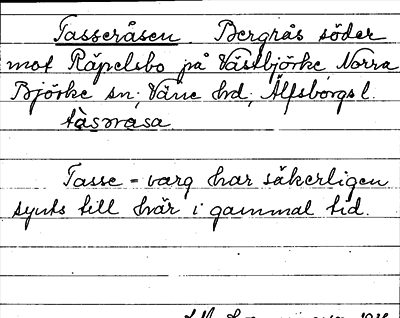 Tasseråsen. Bergrås söder
mot Räpelsbo på Västbjörke, Norra
Björke sn; Väne hd, Älfsborgs l.
Tasse = varg har säkerligen
synts till här i gammal tid.